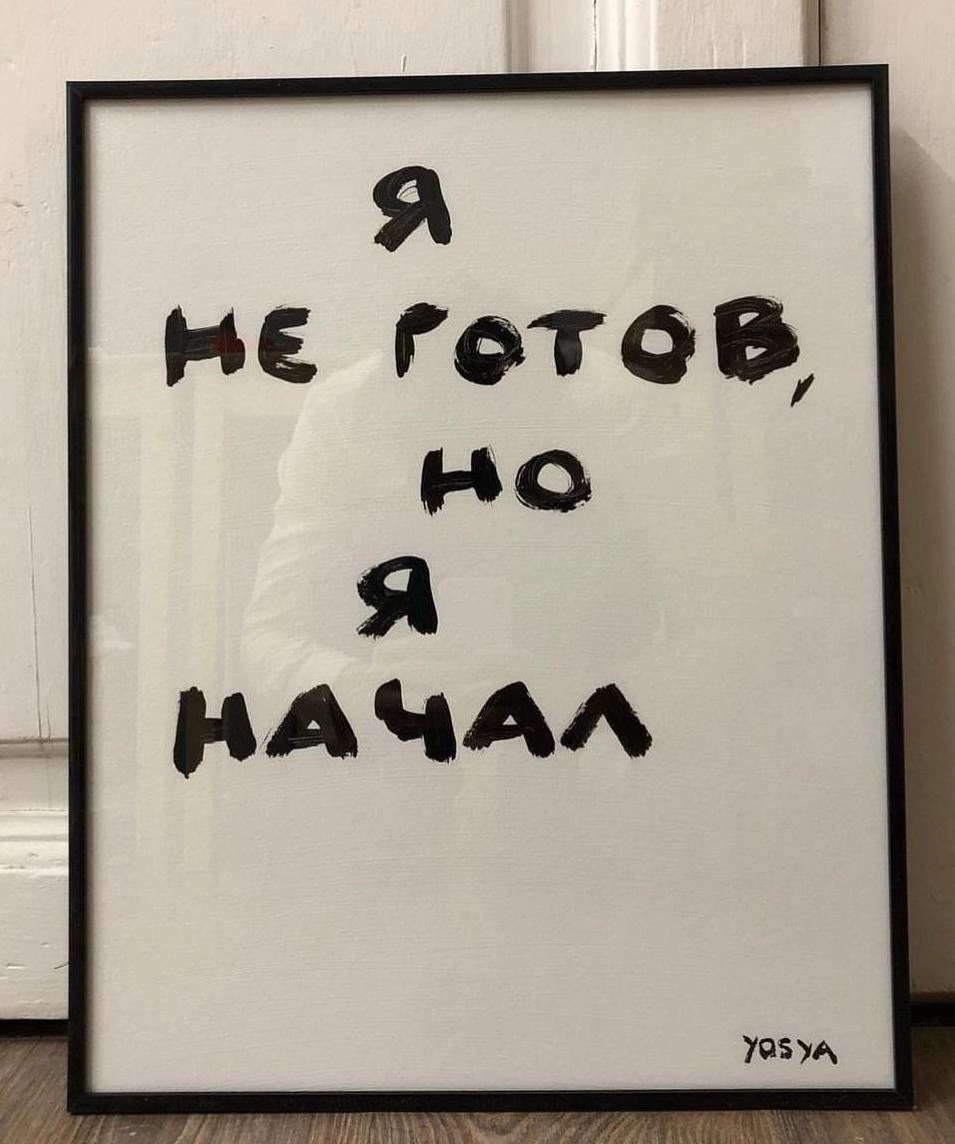 Я
НЕ ГОТОВ,
НО
Я
НАЧАЛ
YOSYA